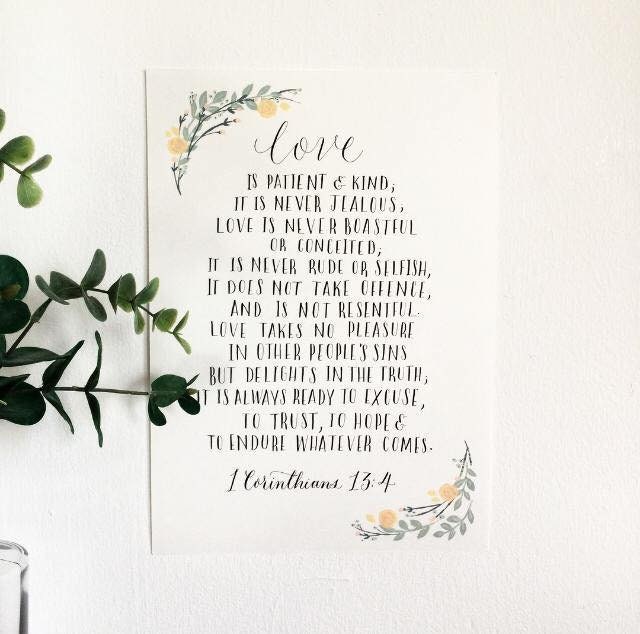 love
IS PATIENT & KIND;
IT IS NEVER JEALOUS,
LOVE IS NEVER BOASTFUL
OR CONCEITED;
IT IS NEVER RUDE OR SELFISH,
IT DOES NOT TAKE OFFENCE,
AND IS NOT RESENTFUL.
LOVE TAKES NO PLEASURE
IN OTHER PEOPLE'S SINS
BUT DELIGHTS IN THE TRUTH;
IT IS ALWAYS READY TO EXCUSE,
TO TRUST, TO HOPE &
TO ENDURE WHATEVER COMES.
1 Corinthians 13:4